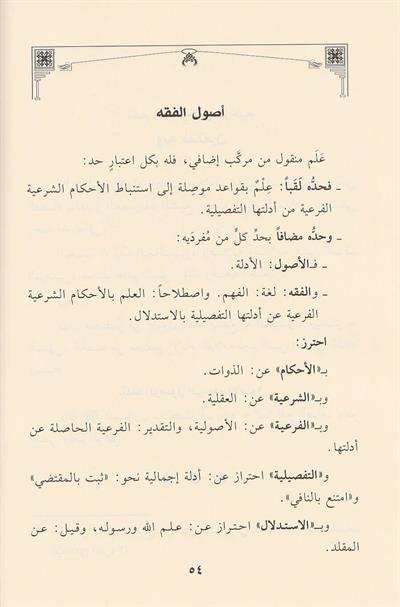 أصول الفقه
عَلَم منقول من مركَّب إضافي، فله بكل اعتبارٍ حد:
ـ فحدُّه لَقَباً: عِلْمٌ بقواعد موصِلة إلى استنباط الأحكام الشرعية
الفرعية من أدلتها التفصيلية.
ـ وحدُّه مضافاً بحدِّ كلٍّ من مُفردَيه:
ـ فـالأصول: الأدلة.
ـ والفقه: لغة: الفهم. واصطلاحاً: العلم بالأحكام الشرعية
الفرعية عن أدلتها التفصيلية بالاستدلال.
احترز:
بـ«الأحكام» عن: الذوات.
وبـ«الشرعية» عن: العقلية.
وبـ«الفرعية» عن: الأصولية، والتقدير: الفرعية الحاصلة عن
أدلتها.
و«التفصيلية» احتراز عن: أدلة إجمالية نحو: «ثبت بالمقتضي»
و«امتنع بالنافي».
وبـ«الاستدلال» احتراز عن: علم الله ورسوله، وقيل: عن
المقلد.
٥٤